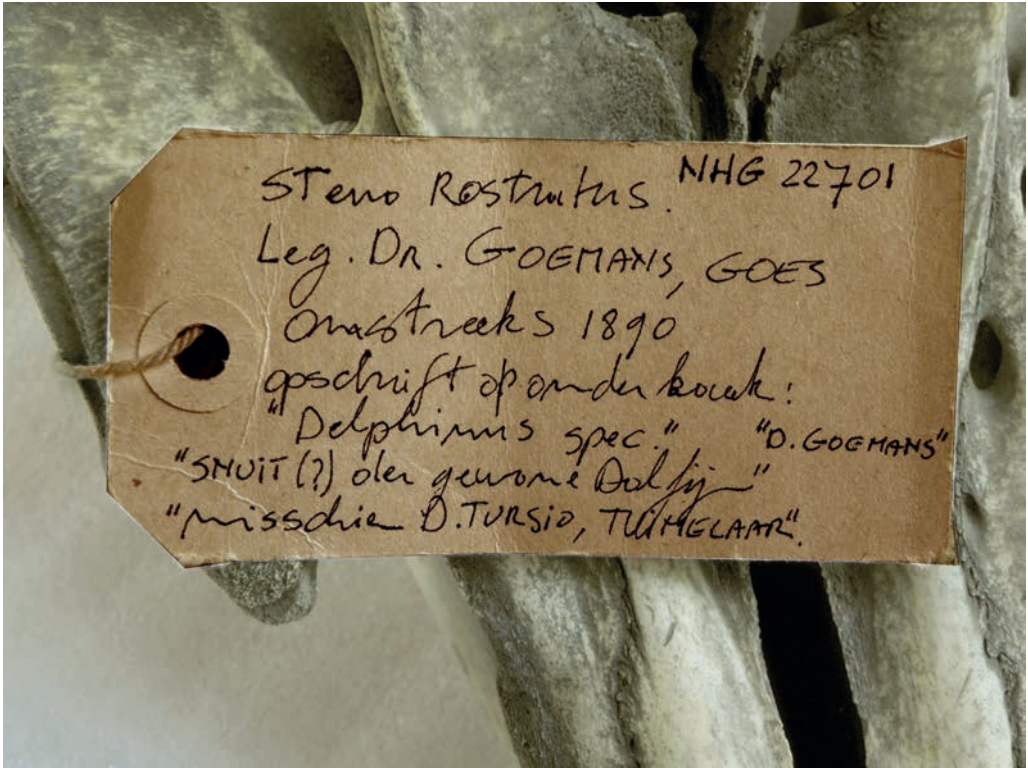 Steno Rostratus. NHG 22701
Leg. Dr. GOEMANS, GOES
omstreeks 1890
opschrift op onderkaak:
"Delphinus spec." "D. GOEMANS"
"SNUIT (?) der gewone Dolfijn"
"misschien D. TURSIO, TUIMELAAR".